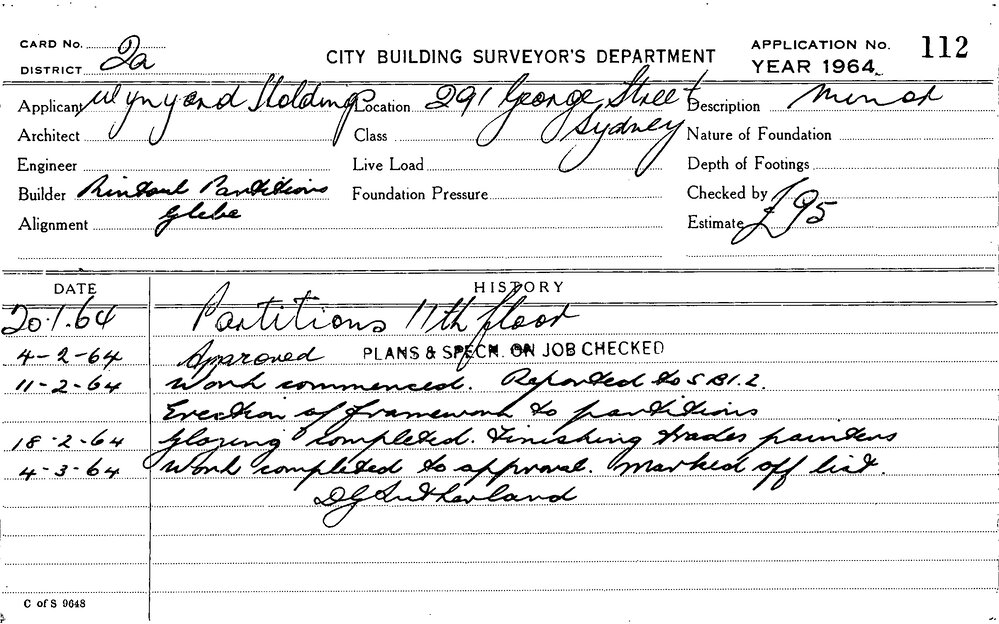 CARD No.
DISTRICT 2a
CITY BUILDING SURVEYOR'S DEPARTMENT
APPLICATION No. 112
YEAR 1964
Applicant Wynyard Holdings
Location 291 George Street
Sydney
Description Minor
Architect
Class
Nature of Foundation
Engineer
Live Load
Depth of Footings
Builder Rintoul Partitions
Glebe
Foundation Pressure
Checked by
Alignment
Estimate £95
DATE HISTORY
20.1.64 Partitions 11th floor
4-2-64 Approved PLANS & SPECN. ON JOB CHECKED
11-2-64 Work commenced. Reported to S.B.I.2.
Erection of framework to partitions
18-2-64 Glazing completed. Finishing trades painters
4-3-64 Work completed to approval. Marked off list.
DG Sutherland
C of S 9648